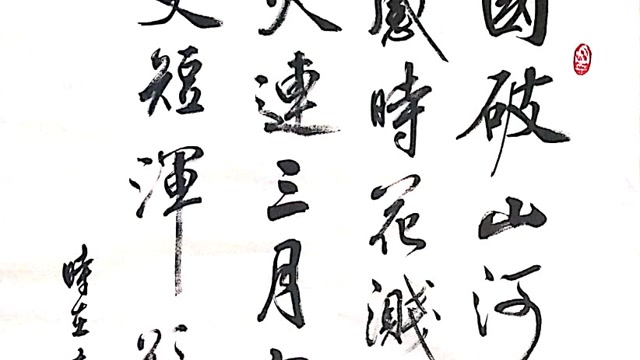 國破山河
感時花濺
火連三月
更短渾
時在